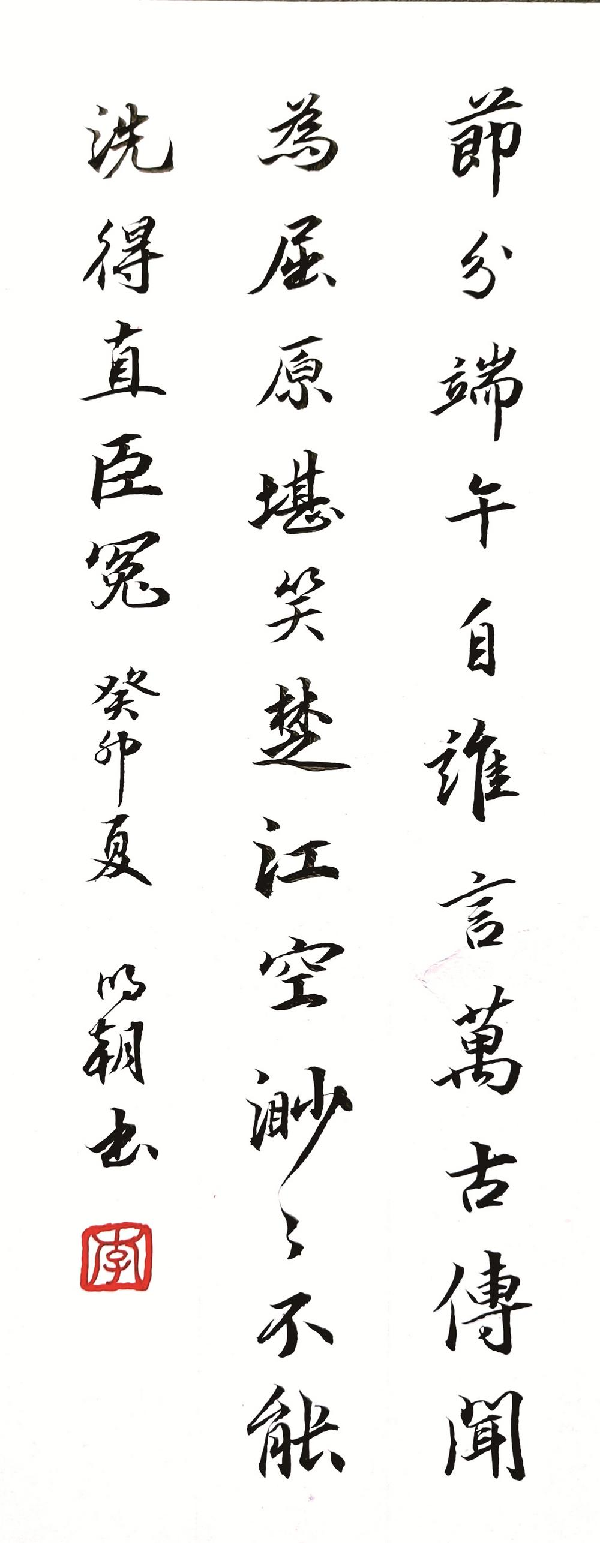 節分端午自誰言萬古傳聞
為屈原堪笑楚江空渺〻不能
洗得直臣冤 癸卯夏 明朝书
李